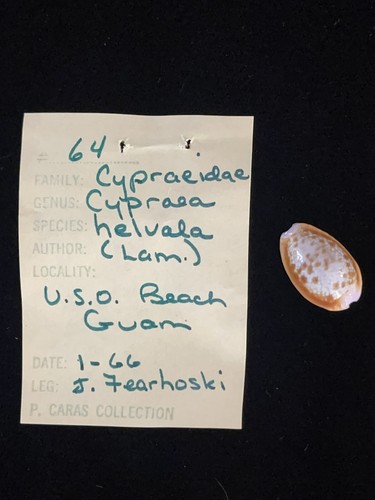 # 64
FAMILY: Cypraeidae
GENUS: Cypraea
SPECIES: helvala
AUTHOR: (Lam.)
LOCALITY:
U.S.O. Beach
Guam
DATE: 1-66
LEG: J. Fearhoski
P. CARAS COLLECTION